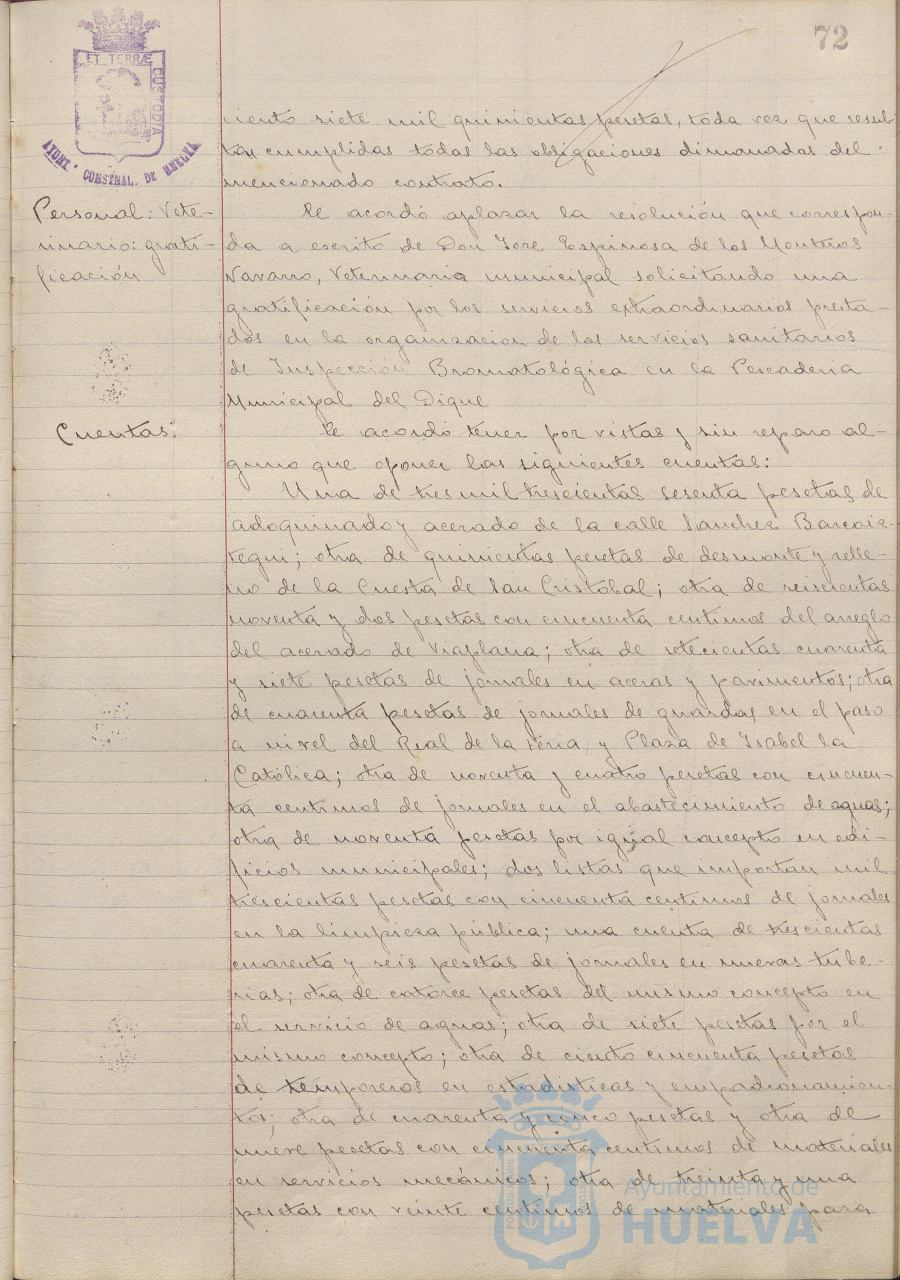 72
ET TERRÆ
CUSTODIA
AYUNT. CONSTNAL. DE HUELVA
ciento siete mil quinientas pesetas, toda vez que resul-
tan cumplidas todas las obligaciones dimanadas del
mencionado contrato.
Personal: Vete-
rinario: grati-
ficación
Se acordó aplazar la resolución que correspon-
da a escrito de Don Jose Espinosa de los Monteros
Navarro, Veterinario municipal solicitando una
gratificación por los servicios extraordinarios presta-
dos en la organizacion de los servicios sanitarios
de Inspección Bromatológica en la Pescaderia
Municipal del Dique
Cuentas:
Se acordó tener por vistas y sin reparo al-
guno que oponer las siguientes cuentas:
Una de tres mil trescientas sesenta pesetas de
adoquinado y acerado de la calle Sanchez Barcaiz-
tegui; otra de quinientas pesetas de desmonte y relle-
no de la Cuesta de San Cristóbal; otra de seiscientas
noventa y dos pesetas con cincuenta centimos del arreglo
del acerado de Viaplana; otra de setecientas cuarenta
y siete pesetas de jornales en aceras y pavimentos; otra
de cuarenta pesetas de jornales de guardas en el paso
a nivel del Real de la Feria, y Plaza de Isabel la
Católica; otra de noventa y cuatro pesetas con cincuen-
ta centimos de jornales en el abastecimiento de aguas;
otra de noventa pesetas por igual concepto en edi-
ficios municipales; dos listas que importan mil
trescientas pesetas con cincuenta centimos de jornales
en la limpieza pública; una cuenta de trescientas
cuarenta y seis pesetas de jornales en nuevas tube-
rias; otra de catorce pesetas del mismo concepto en
el servicio de aguas; otra de siete pesetas por el
mismo concepto; otra de ciento cincuenta pesetas
de temporeros en estadisticas y empadronamien-
tos; otra de cuarenta y cinco pesetas y otra de
nueve pesetas con cincuenta centimos de materiales
en servicios mecánicos; otra de treinta y una
pesetas con veinte centimos de materiales para
Ayuntamiento de
HUELVA